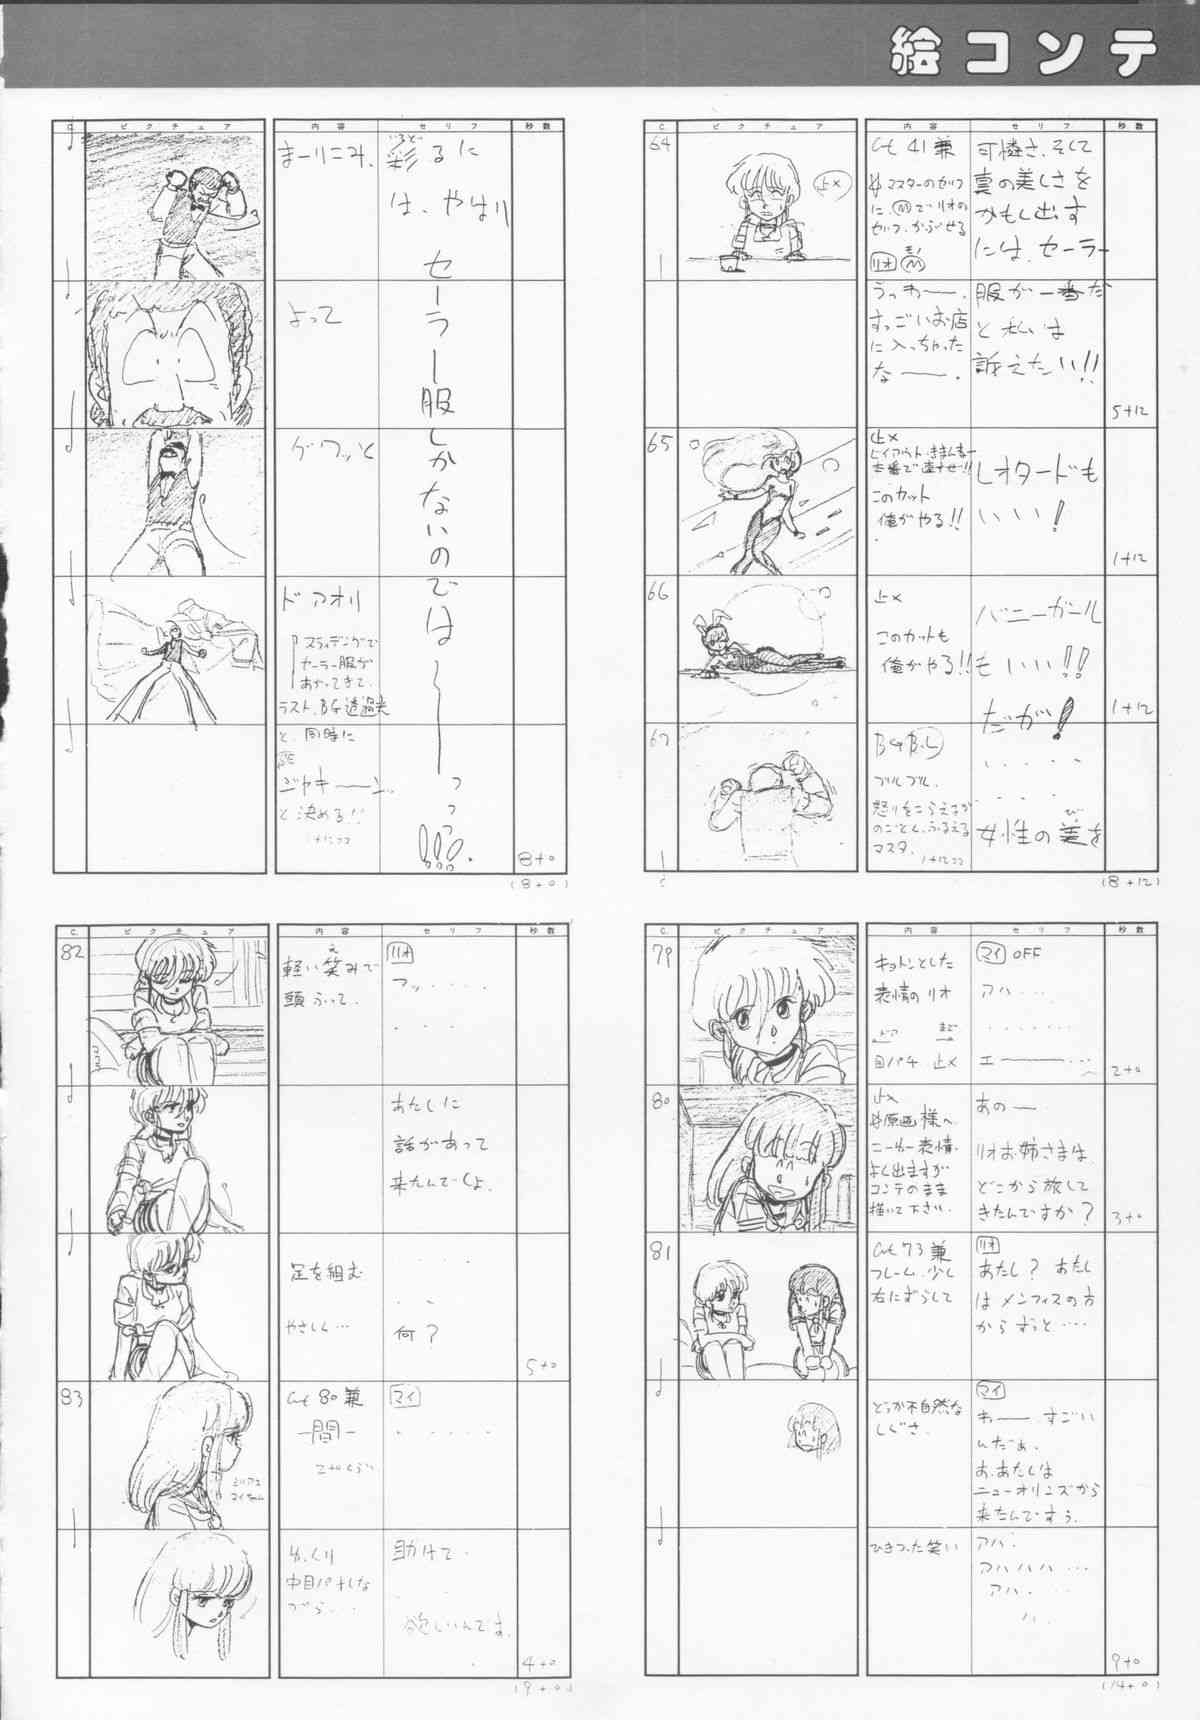 絵コンテ
C. ピクチュア 内容 セリフ 秒数
64
Cut 41 兼
マスターのセリフ
に、Ⓜでリオの
セリフ、かぶせる
リオ Ⓜ
止メ
可憐さ、そして
真の美しさを
かもし出す
には、セーラー
うっわー、
すっごいお店
に入っちゃった
なー。
服が一番だ
と私は
訴えたい!!
5+12
65
止メ
このカット
俺がやる!!
レオタードも
いい!
1+12
66
止メ
このカットも
俺がやる!!
バニーガール
もいい!!
だが!
1+12
67
BG B.L
ブルブル。
怒りをこらえるが
のごとく、ふるえる
マスタ。
1+12コマ
女性の美を
び
(8+12)
C. ピクチュア 内容 セリフ 秒数
まーりこみ、
彩るに
いろど
は、やはり
セーラー服しかないのでは〜〜っっっ!!!。
よって
グワッと
ド アオリ
スライディングで
セーラー服が
あがってきて、
ラスト、BG透過光
と、同時に
SE
ジャキーーン
と決める!!
1+12コマ
8+0
(8+0)
C. ピクチュア 内容 セリフ 秒数
79
キョトンとした
表情のリオ
目パチ 止メ
マイ OFF
アハ・・・・
エーーー・・・
2+0
80
止メ
原画様へ
ニーカー表情、
よく出ますが
コンテのまま
描いて下さい。
あのー
リオお姉さまは
どこから旅して
きたんですか?
3+0
81
Cut 73 兼
フレーム、少し
右にずらして
リオ
あたし? あたし
はメンフィスの方
からずっと・・・・
どっか不自然な
しぐさ。
マイ
わー、すごい
んだぁ。
あ、あたしは
ニューオリンズから
来たんですぅ。
ひきつった笑い
アハ・
アハハハ・・・
アハ・・・・
ハ・・
9+0
(14+0)
C. ピクチュア 内容 セリフ 秒数
82
軽い笑みで
え
頭ふって、
リオ
フッ・・・・・
・・・
あたしに
話があって
来たんでしょ。
足を組む
やさしく・・・
・・・・
何?
5+0
83
Cut 80 兼
―間―
2+0くらい
マイ
・・・・・・
ゆっくり
中目パチしな
がら・・・
助けて・・
欲しいんです。
4+0
(9+0)